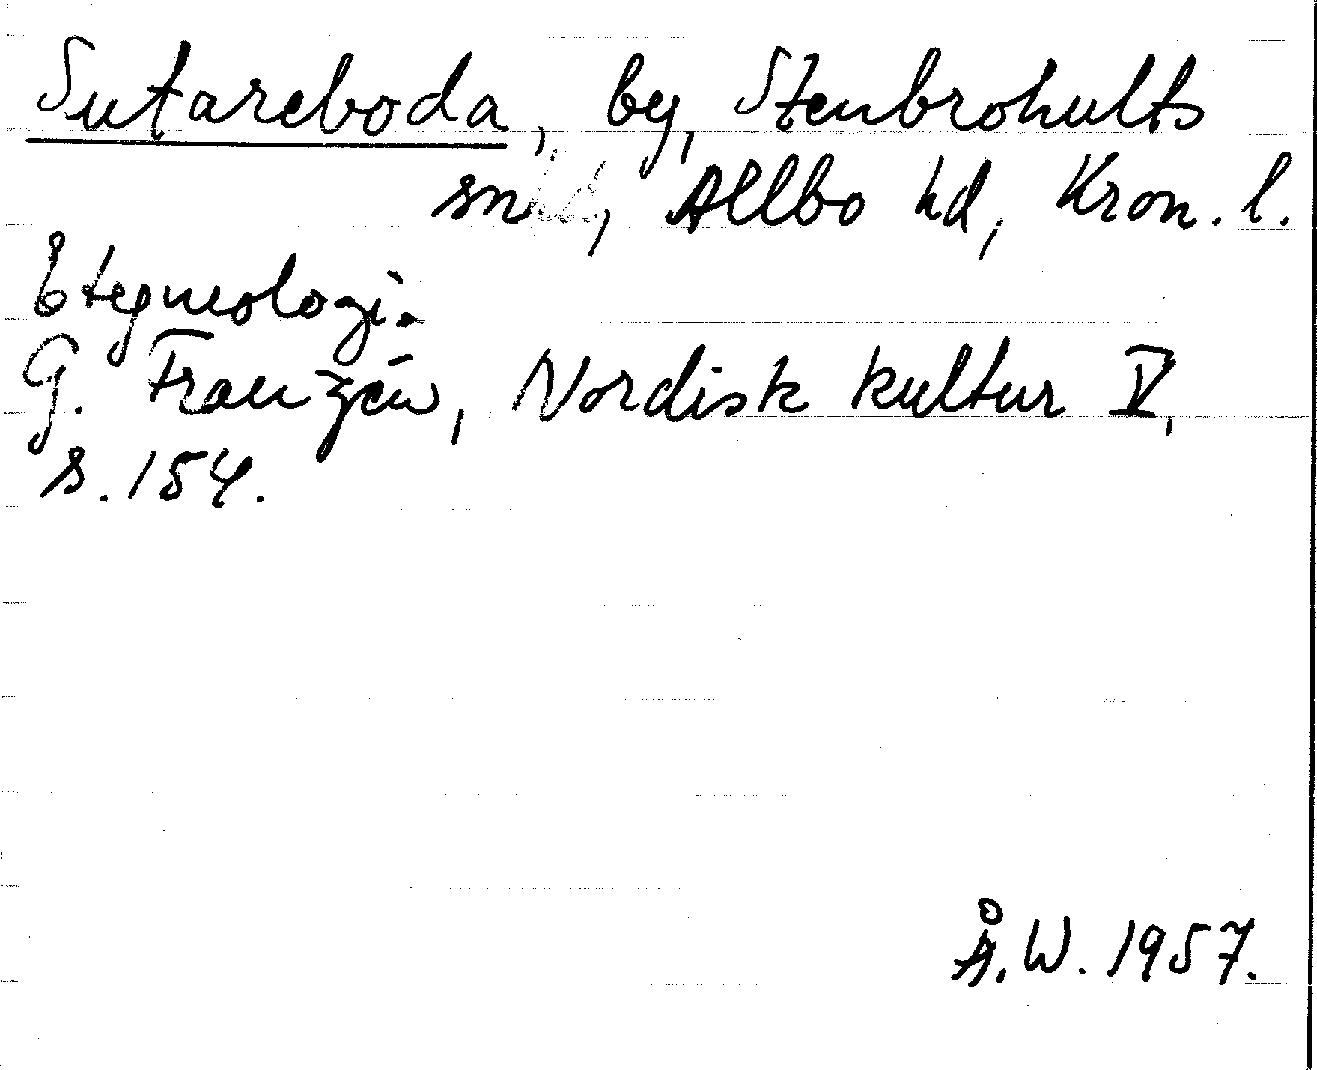 Sutareboda, by, Stenbrohults
sn, Allbo hd, Kron. l.
Etymologi.
G. Franzén, Nordisk kultur V,
s. 154.
Å. W. 1957.